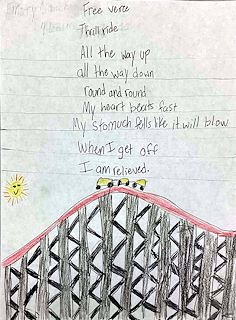 Free verse
Thrill ride
All the way up
all the way down
round and round
My heart beats fast
My stomuch fells like it will blow
When I get off
I am relieved.